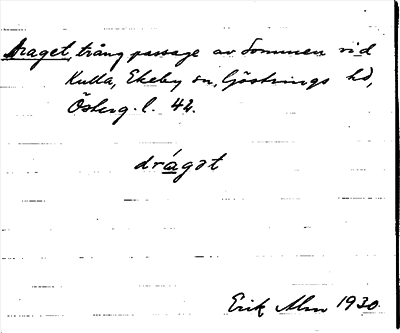 Draget, trång passage av Sommen vid
Kulla, Ekeby sn, Göstrings hd,
Österg. l. 42.
drágat
Erik Alm 1930.